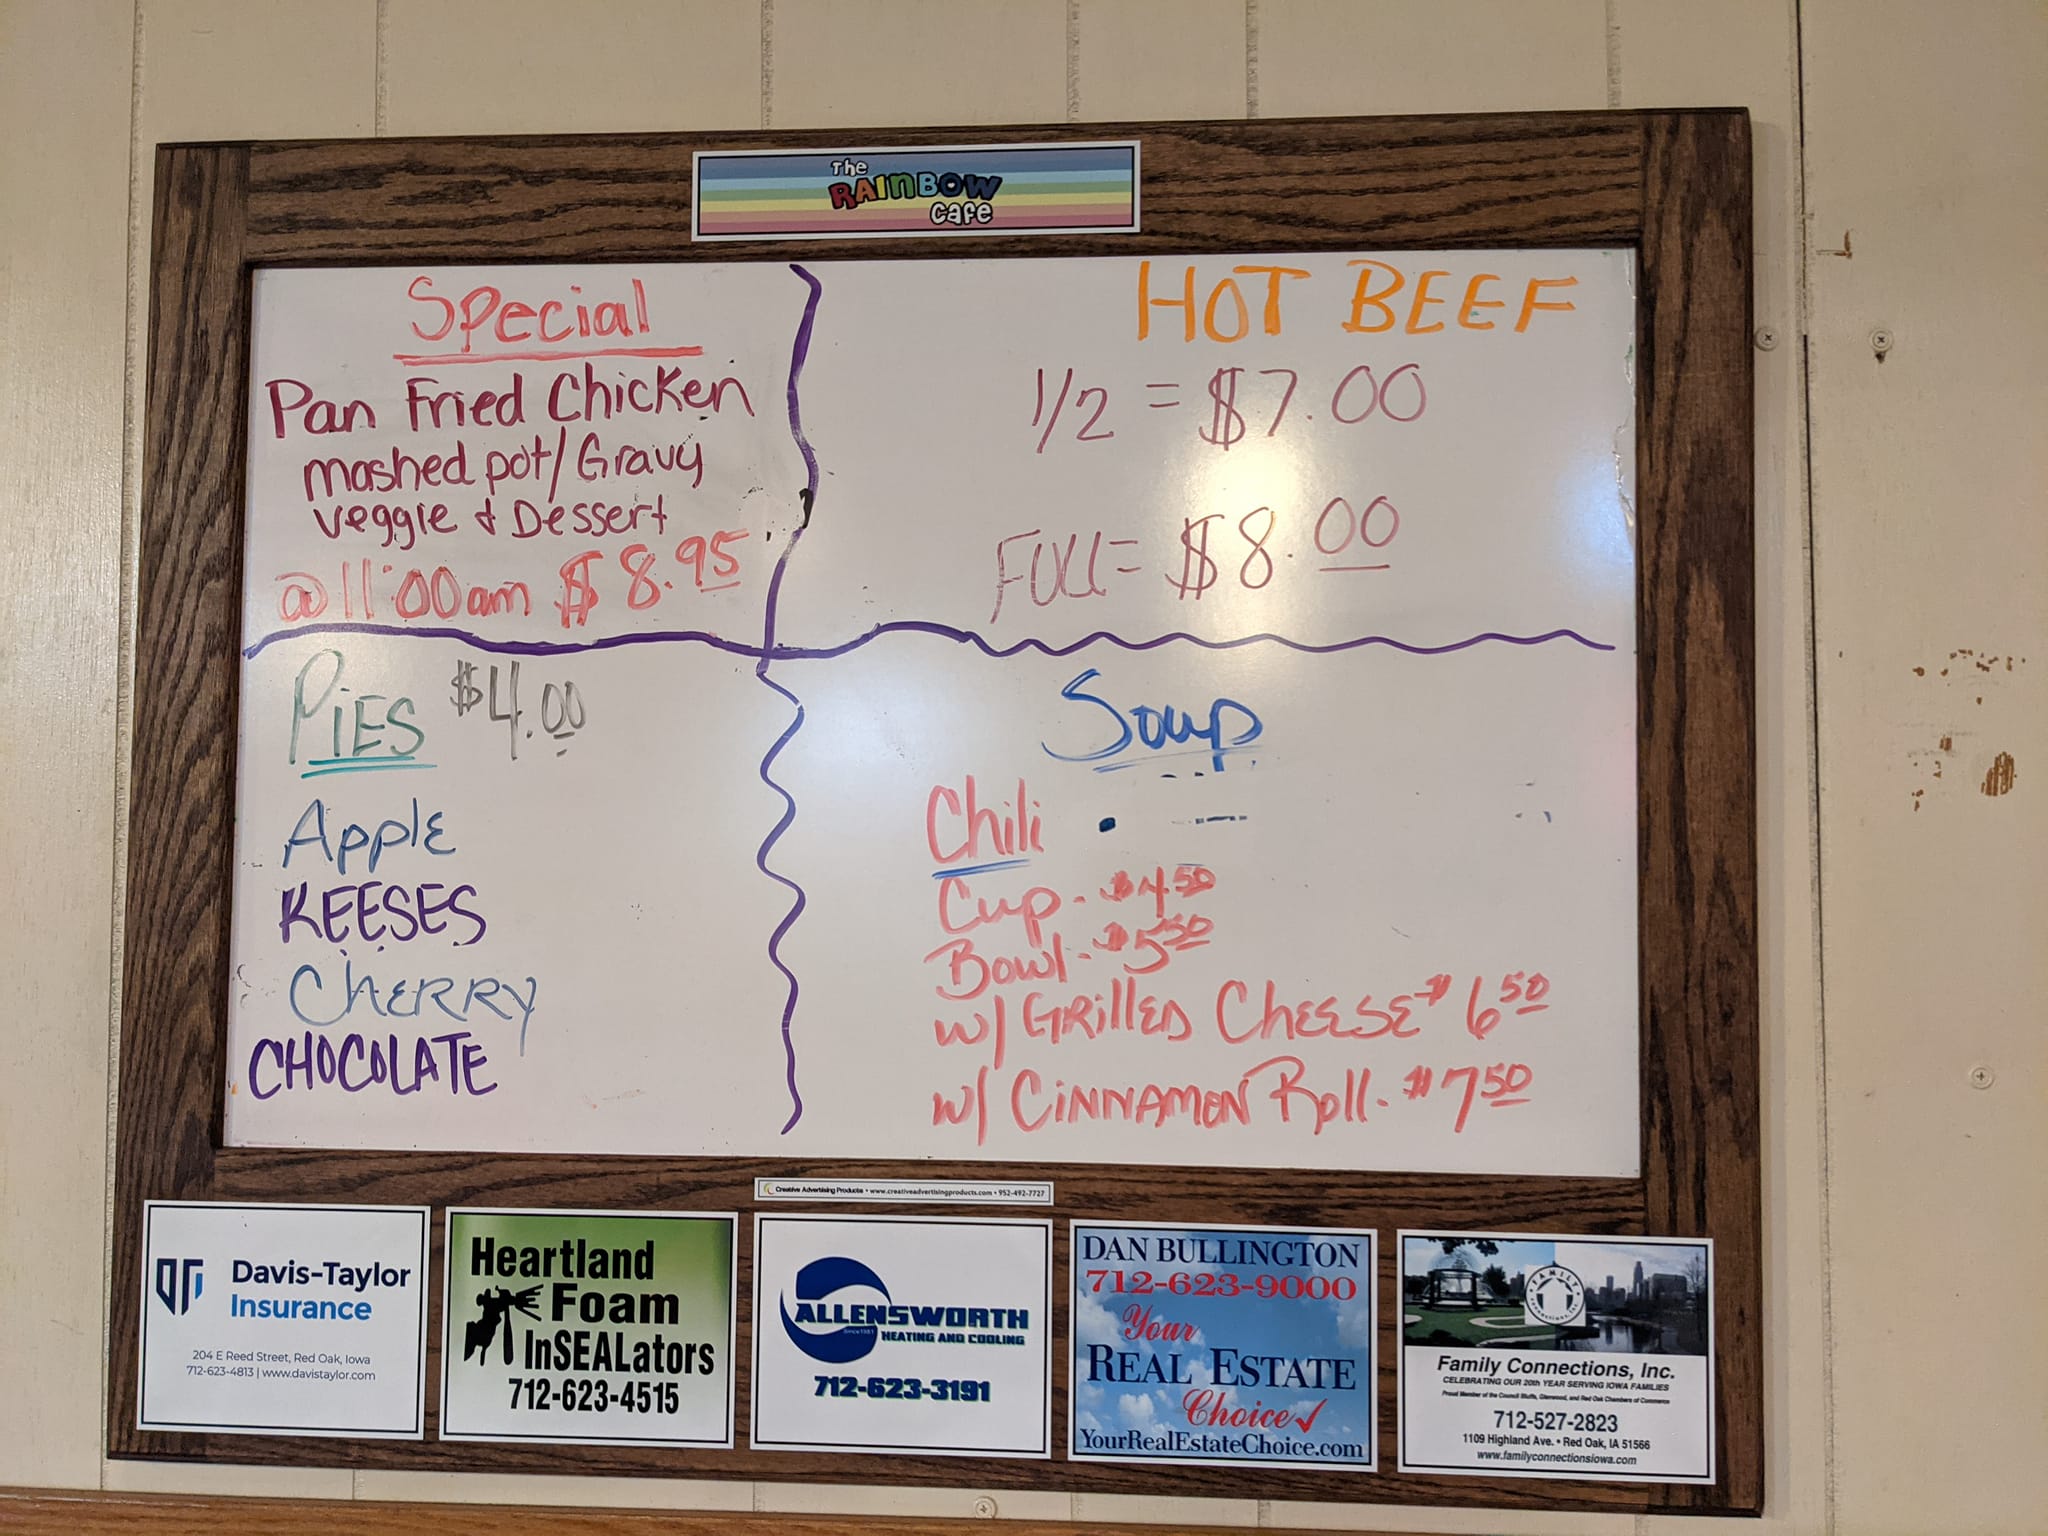 The
RAINBOW
Cafe
Special
Pan Fried Chicken
mashed pot/Gravy
veggie & Dessert
@ 11:00am $8.95
HOT BEEF
1/2 = $7.00
FULL = $8.00
PiES $4.00
Apple
REESES
CHERRY
CHOCOLATE
Soup
Chili
Cup - $4.50
Bowl - $5.50
w/ GRilled CHEESE $6.50
w/ CiNNAMON Roll - $7.50
Creative Advertising Products • www.creativeadvertisingproducts.com • 952-492-7727
Davis-Taylor
Insurance
204 E Reed Street, Red Oak, Iowa
712-623-4813 | www.davistaylor.com
Heartland
Foam
InSEALators
712-623-4515
ALLENSWORTH
Since 1981
HEATING AND COOLING
712-623-3191
DAN BULLINGTON
712-623-9000
Your
REAL ESTATE
Choice
YourRealEstateChoice.com
FAMILY
Connections, Inc.
Family Connections, Inc.
CELEBRATING OUR 20th YEAR SERVING IOWA FAMILIES
Proud Member of the Council Bluffs, Glenwood, and Red Oak Chambers of Commerce
712-527-2823
1109 Highland Ave. • Red Oak, IA 51566
www.familyconnectionsiowa.com